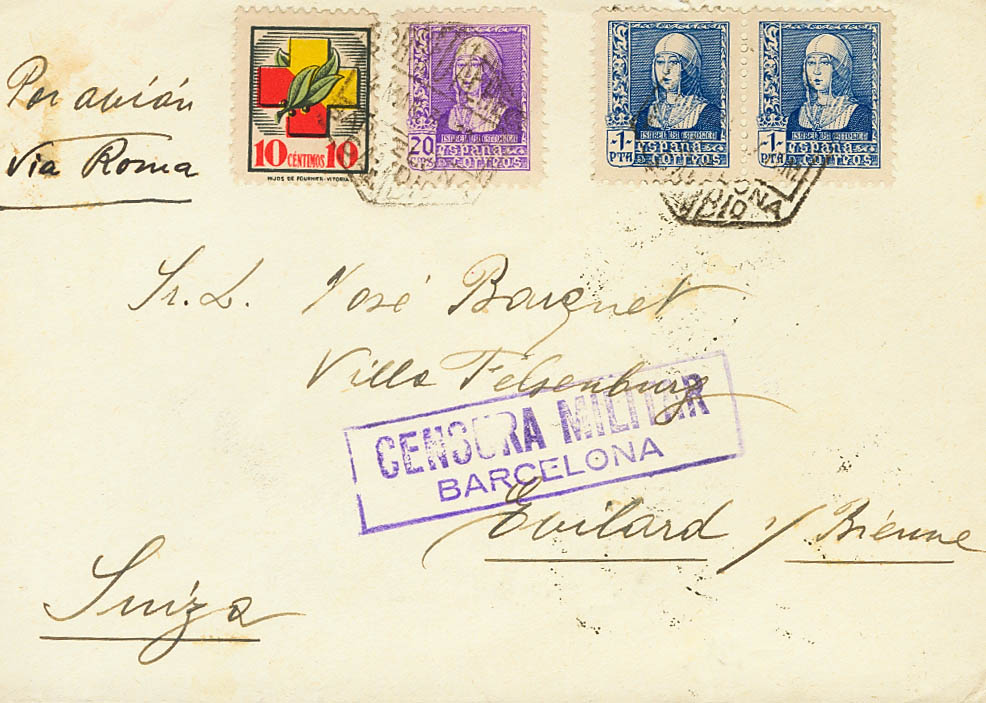 Por avión
Via Roma
10 CÉNTIMOS 10
HIJOS DE FOURNIER-VITORIA
20
CTS
ISABEL LA CATOLICA
España
CORREOS
-1-
PTA
ISABEL LA CATOLICA
España
CORREOS
-1-
PTA
ISABEL LA CATOLICA
España
CORREOS
BARCELONA
Sr. D. José Barquet
Villa Felsenburg
CENSURA MILITAR
BARCELONA
Evilard s/ Bienne
Suiza